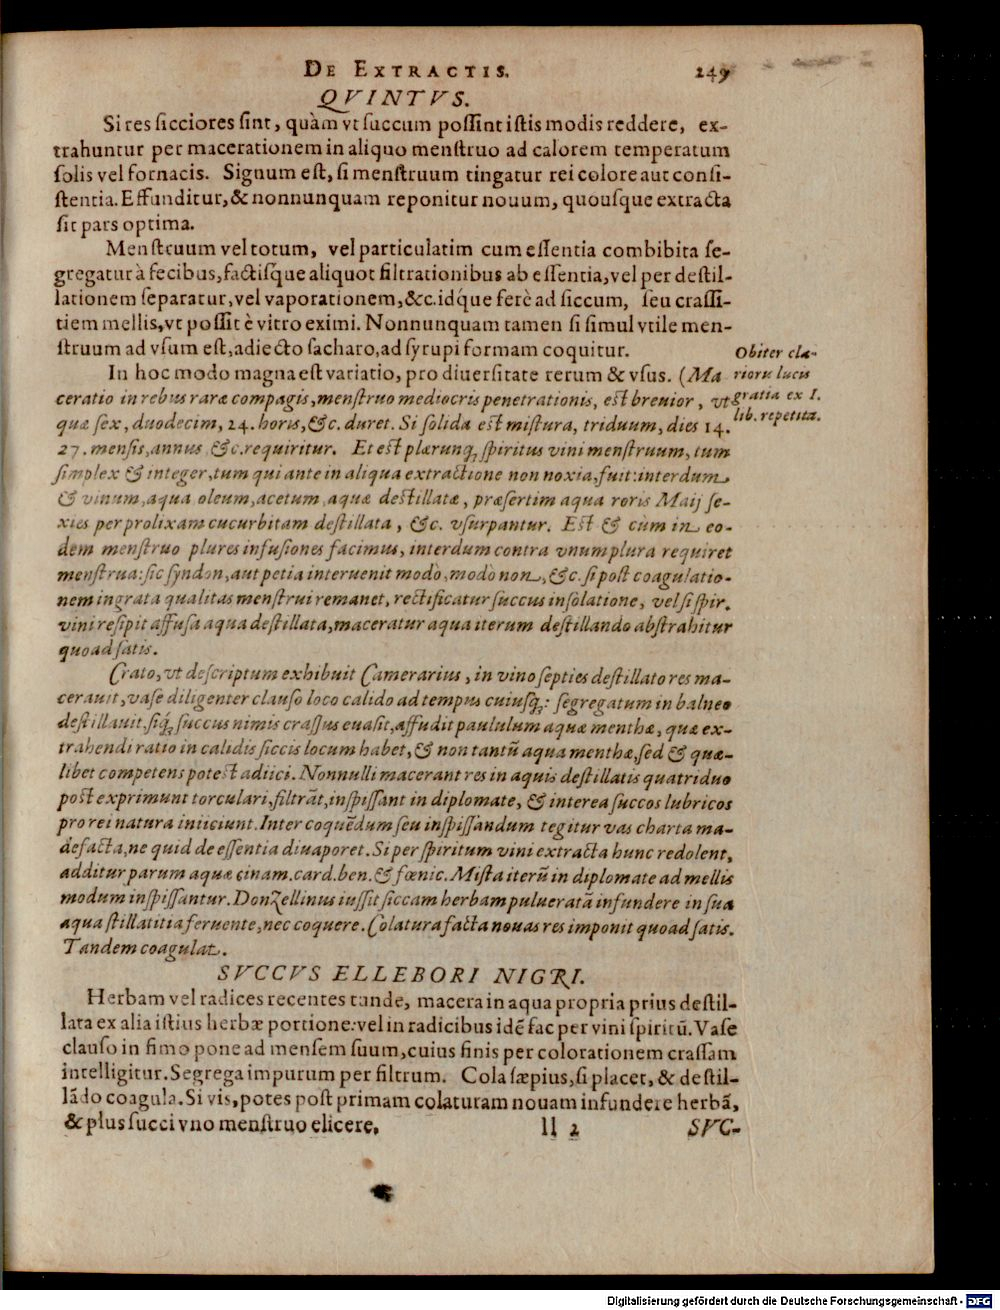 DE EXTRACTIS. 249
QVINTVS.
Si res sicciores sint, quàm vt succum possint istis modis reddere, ex-
trahuntur per macerationem in aliquo menstruo ad calorem temperatum
solis vel fornacis. Signum est, si menstruum tingatur rei colore aut consi-
stentia. Effunditur, & nonnunquam reponitur nouum, quousque extracta
sit pars optima.
Menstruum vel totum, vel particulatim cum essentia combibita se-
gregatur à fecibus, factisque aliquot filtrationibus ab essentia, vel per destil-
lationem separatur, vel vaporationem, &c. idq́ue ferè ad siccum, seu crassi-
tiem mellis, vt possit è vitro eximi. Nonnunquam tamen si simul vtile men-
struum ad vsum est, adiecto sacharo, ad syrupi formam coquitur.
In hoc modo magna est variatio, pro diuersitate rerum & vsus. (Ma
ceratio in rebus raræ compagis, menstruo mediocris penetrationis, est breuior, vt
quæ sex, duodecim, 24. horis, &c. duret. Si solida est mistura, triduum, dies 14.
27. mensis, annus &c. requiritur. Et est plærunq; spiritus vini menstruum, tum
simplex & integer, tum qui ante in aliqua extractione non noxia, fuit: interdum
& vinum, aqua oleum, acetum, aquæ destillatæ, præsertim aqua roris Maij se-
xies per prolixam cucurbitam destillata, &c. vsurpantur. Est & cùm in eo-
dem menstruo plures infusiones facimus, interdum contra vnum plura requiret
menstrua: sic syndon, aut petia interuenit modò, modò non, &c. si post coagulatio-
nem ingrata qualitas menstrui remanet, rectificatur succus insolatione, vel si spir.
vini resipit affusa aqua destillata, maceratur aqua iterum destillando abstrahitur
quoad satis.
Crato, vt descriptum exhibuit Camerarius, in vino septies destillato res ma-
cerauit, vase diligenter clauso loco calido ad tempus cuiusq;: segregatum in balneo
destillauit, siq́; succus nimis crassus euasit, affudit paululum aquæ menthæ, quæ ex-
trahendi ratio in calidis siccis locum habet, & non tantũ aqua menthæ, sed & quæ-
libet competens potest adiici. Nonnulli macerant res in aquis destillatis quatriduo
post exprimunt torculari, filtrãt, inspissant in diplomate, & interea succos lubricos
pro rei natura iniiciunt. Inter coquẽdum seu inspissandum tegitur vas charta ma-
defacta, ne quid de essentia diuaporet. Si per spiritum vini extracta hunc redolent,
additur parum aquæ cinam. card. ben. & fœnic. Mista iterũ in diplomate ad mellis
modum inspissantur. DonZellinus iussit siccam herbam pulueratã infundere in sua
aqua stillatitia feruente, nec coquere. Colatura facta nouas res imponit quoad satis.
Tandem coagulat.
Obiter cla-
rioru lucis
gratia ex I.
lib. repetitæ.
SVCCVS ELLEBORI NIGRI.
Herbam vel radices recentes tunde, macera in aqua propria prius destil-
lata ex alia istius herbæ portione: vel in radicibus idẽ fac per vini spiritũ. Vase
clauso in fimo pone ad mensem suum, cuius finis per colorationem crassam
intelligitur. Segrega impurum per filtrum. Cola sæpius, si placet, & destil-
lãdo coagula. Si vis, potes post primam colaturam nouam infundere herbã,
& plus succi vno menstruo elicere.
ll 2 SVC-
Digitalisierung gefördert durch die Deutsche Forschungsgemeinschaft - DFG